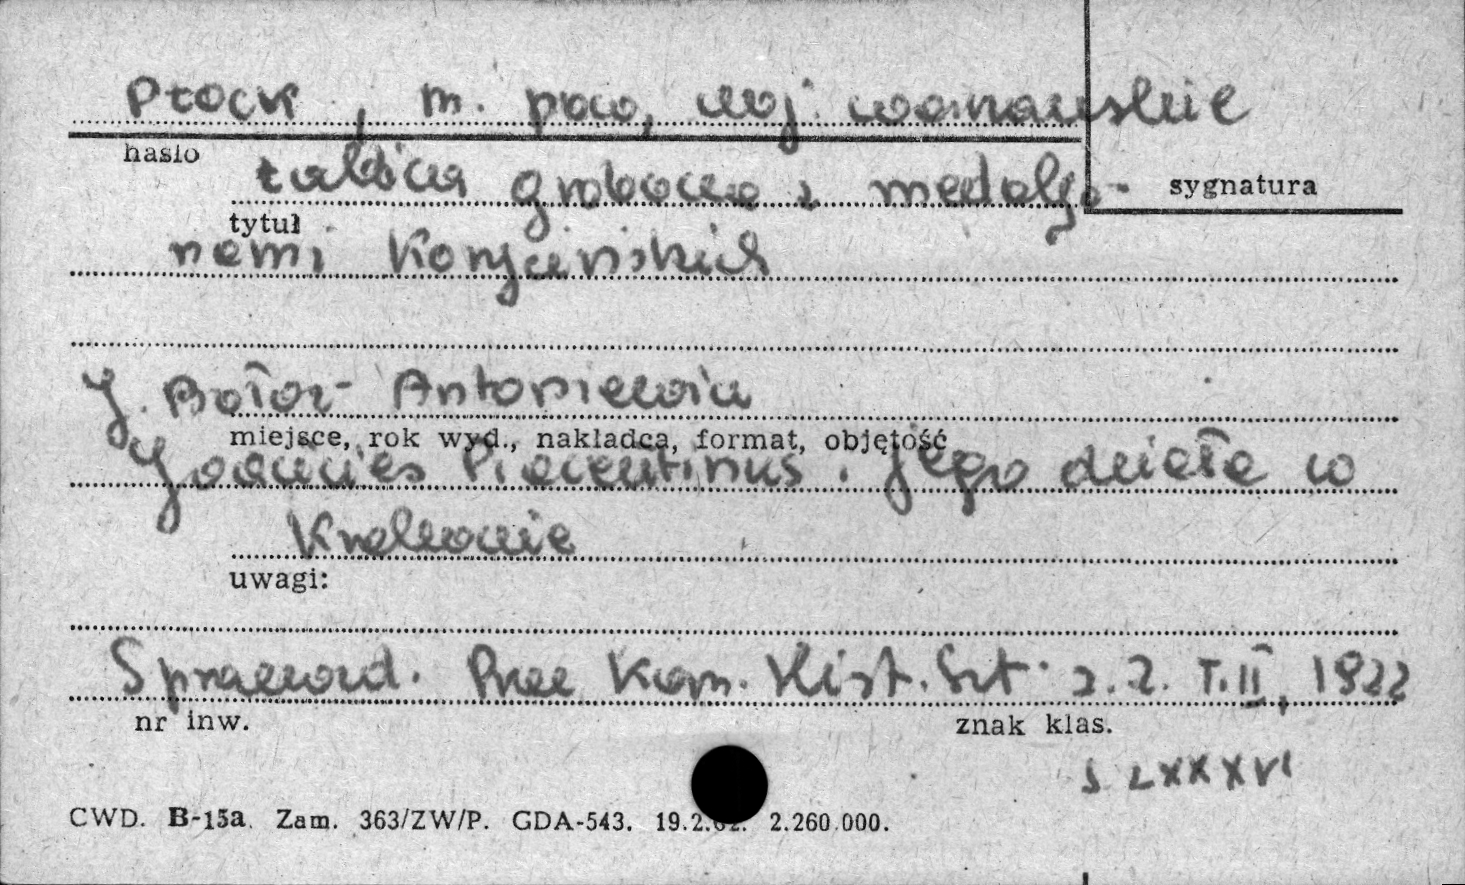 Płock, m. pow, woj. warszawskie
hasło
tablica grobowa z medaljo-
sygnatura
tytuł
nami Kony
J. Bołoz-Antoniewicz
miejsce, rok wyd., nakładca, format, objętość
Joannes Placentinus. Jego dzieła w
Krakowie
uwagi:
Sprawozd. Prac Kom. Hist. Szt. z. 2. T. II, 1922
nr inw.
znak klas.
s LXXXVI
CWD. B-15a Zam. 363/ZW/P. GDA-543. 19.2.62. 2.260.000.